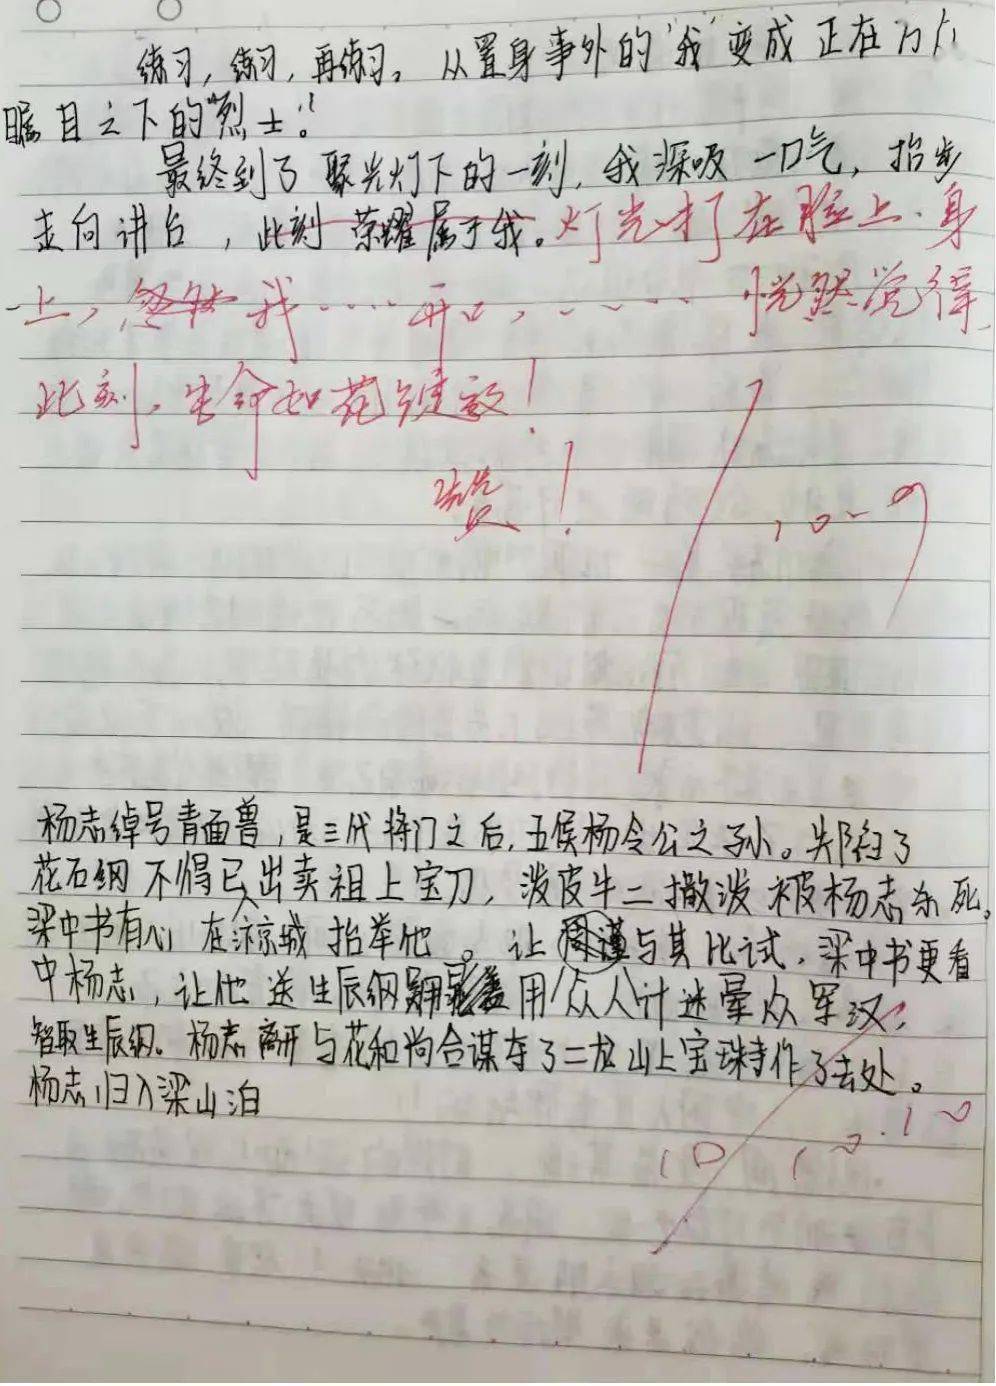 练习，练习，再练习。从置身事外的“我”变成正在万人
瞩目之下的“烈士”！
最终到了聚光灯下的一刻，我深吸一口气，抬步
走向讲台，此刻荣耀属于我。灯光打在脸上、身
上，忽然我……开口，…… 恍然觉得，
此刻，生命如花绽放！
赞！
10-9
杨志绰号青面兽，是三代将门之后，五侯杨令公之孙。失陷了
花石纲不得已出卖祖上宝刀，泼皮牛二撒泼被杨志杀死。
梁中书有心在京城抬举他。让周谨与其比试，梁中书更看
中杨志，让他送生辰纲 用众人计迷晕众军汉，
智取生辰纲。杨志离开与花和尚合谋夺了二龙山上宝珠寺作了去处。
杨志归入梁山泊
10 10.10